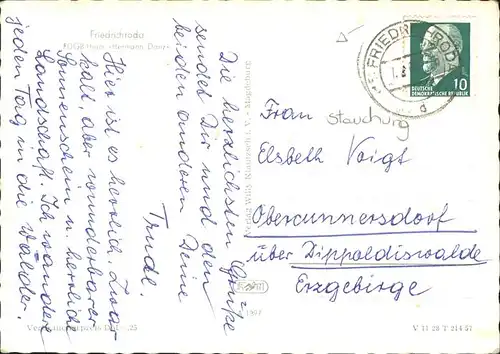 Friedrichroda
FDGB-Heim "Hermann Danz"
Hier ist es herrlich. Zwar
kalt, aber wunderbarer
Sonnenschein u. herrliche
Landschaft. Ich wandere
jeden Tag in die Wälder.
Die herzlichsten Grüße
sendet Dir und den
beiden anderen Deine
Trude.
Verlag Willy Klautzsch i. V. - Magdeburg
FRIEDRICHRODA
d
10
DEUTSCHE
DEMOKRATISCHE REPUBLIK
Stauchung
Frau
Elsbeth Voigt
Obercunnersdorf
über Dippoldiswalde
Erzgebirge
V 11 28 T 214 57